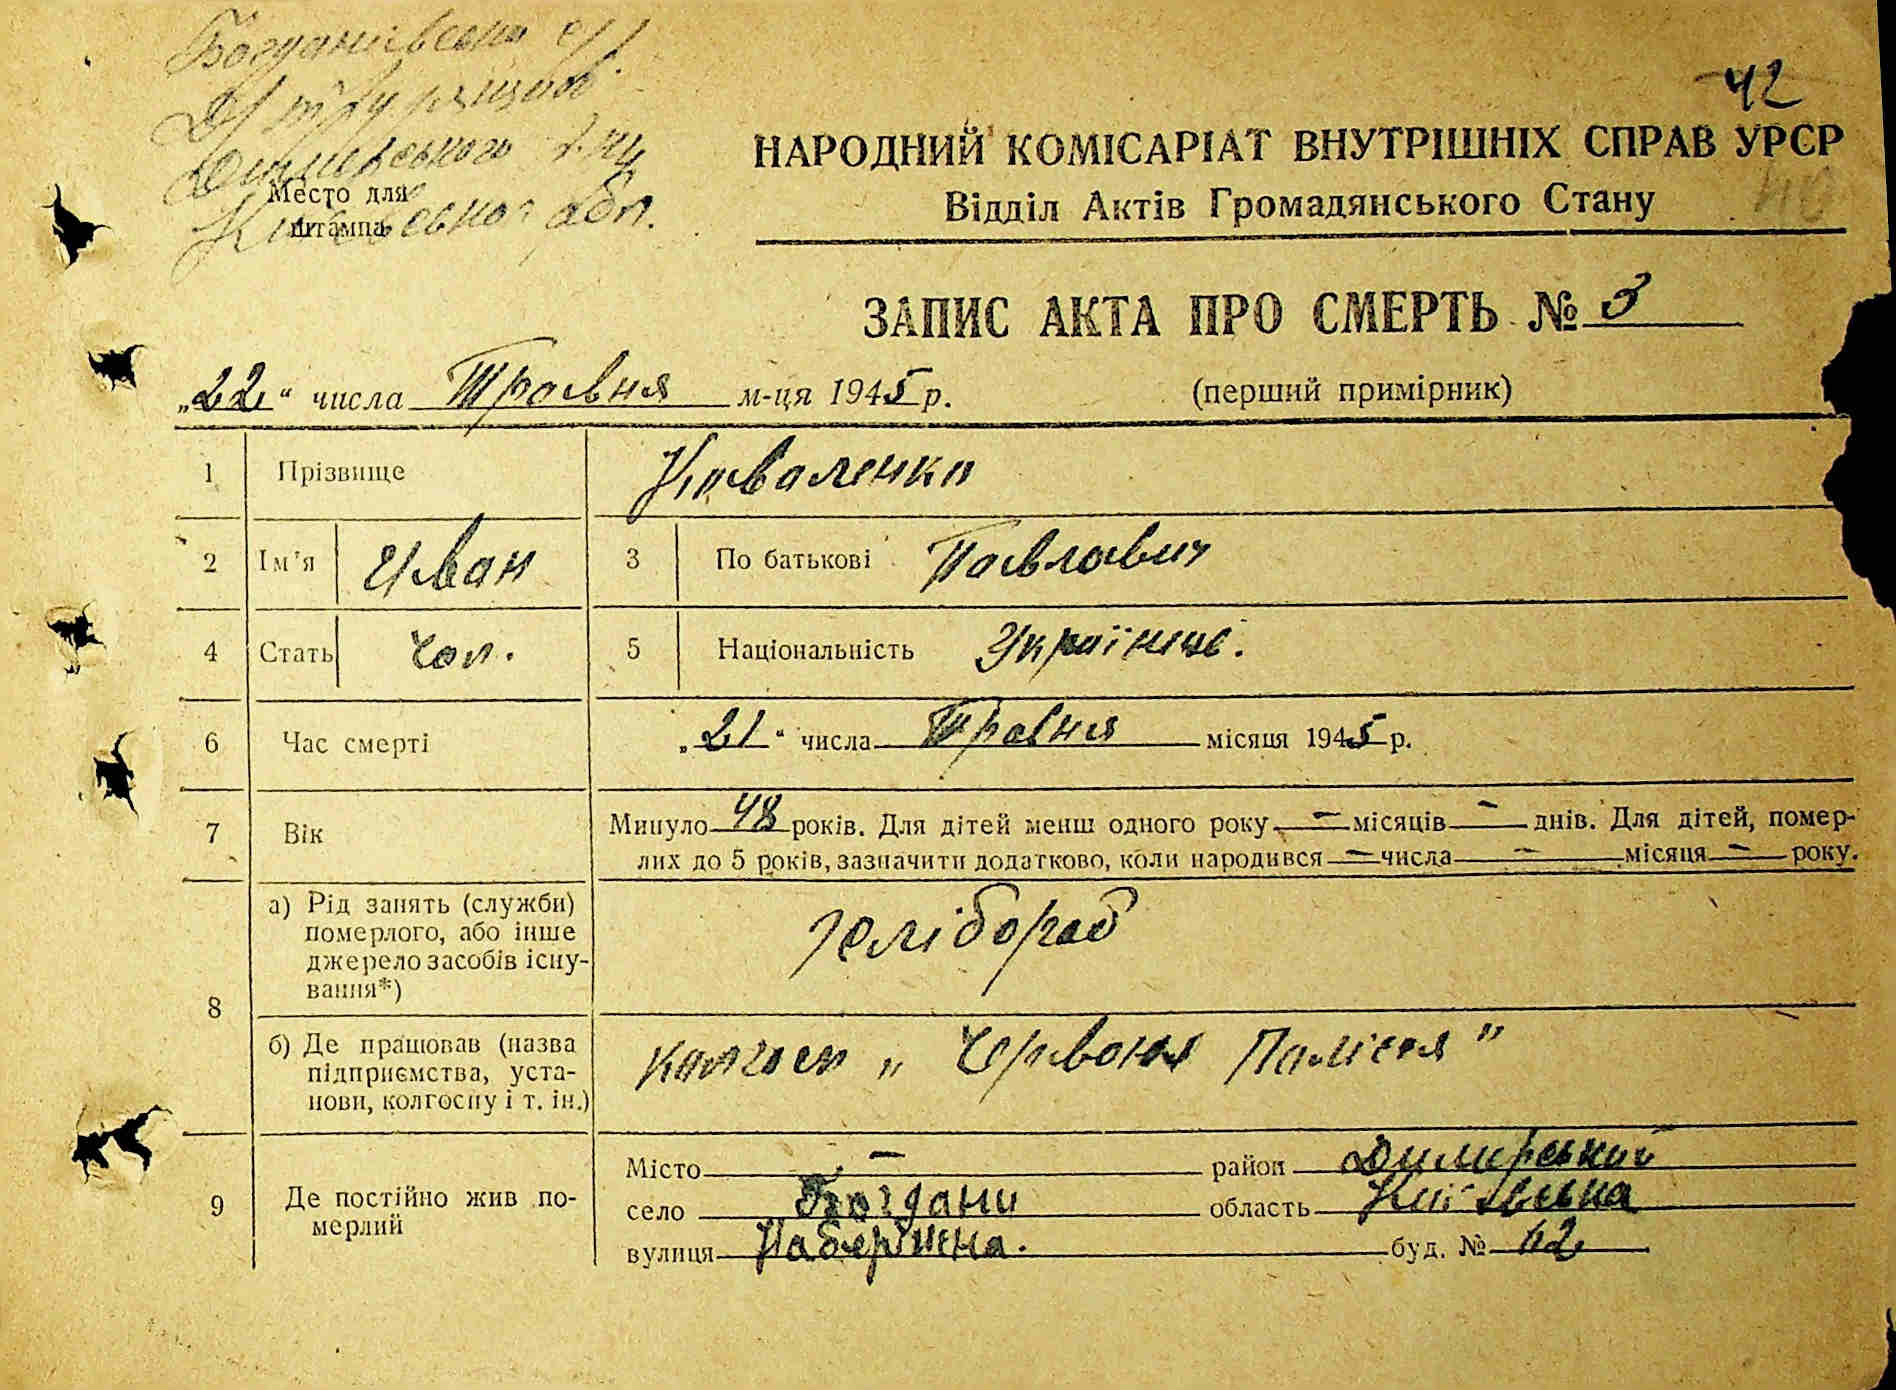 Богданивська с/р
Димерського р-ну
Київської обл.
Место для
штампа
42
НАРОДНИЙ КОМІСАРІАТ ВНУТРІШНІХ СПРАВ УРСР
Відділ Актів Громадянського Стану
40
ЗАПИС АКТА ПРО СМЕРТЬ № 3
„22“ числа Травня м-ця 1945 р. (перший примірник)
1 Прізвище Коваленко
2 Ім'я Иван 3 По батькові Павлович
4 Стать чол. 5 Національність Українец.
6 Час смерті „21“ числа Травня місяця 1945 р.
7 Вік Минуло 48 років. Для дітей менш одного року — місяців — днів. Для дітей, помер-
лих до 5 років, зазначити додатково, коли народився — числа — місяця — року.
8 а) Рід занять (служби)
померлого, або інше
джерело засобів існу-
вання*)
хлібороб
б) Де працював (назва
підприємства, уста-
нови, колгоспу і т. ін.)
колгосп „Червоня Полісся"
9 Де постійно жив по-
мерлий
Місто — район Димерський
село Богдани область Київська
вулиця Набережна. буд. № 62